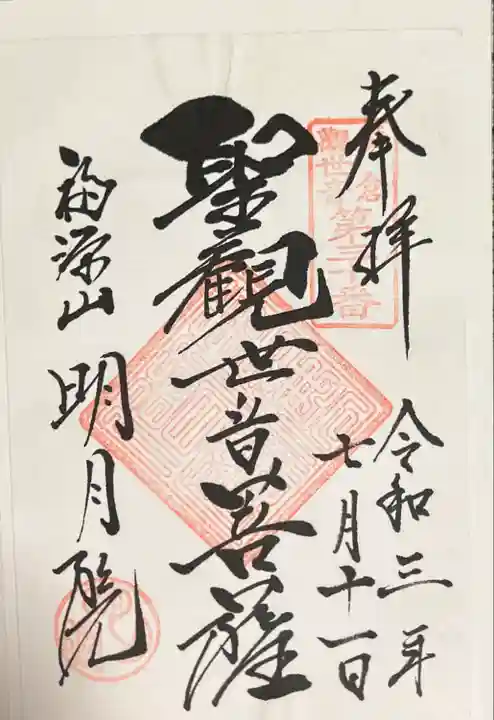 奉拝
令和三年
七月十一日
聖觀世音菩薩
福源山
明月院
倉
観世音第三十番